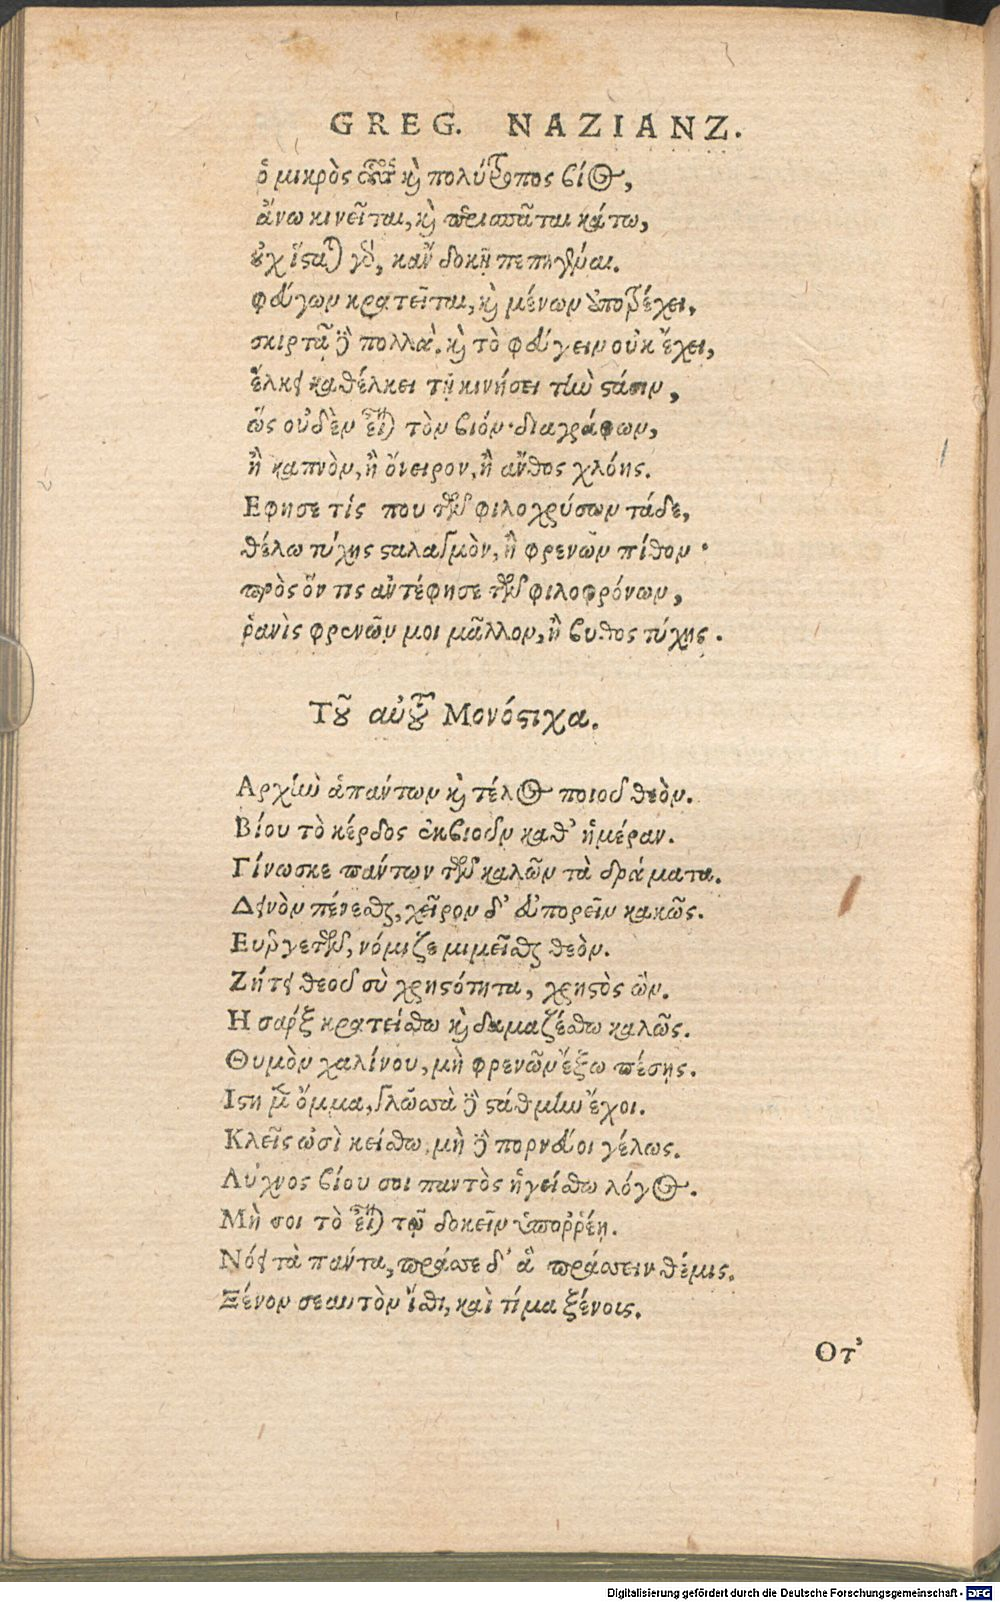 GREG. NAZIANZ.
ὁ μικρὸς οὗτος καὶ πολύτροπος βίος,
ἄνω κινεῖται, καὶ περισπᾶται κάτω,
οὐχ ἵσταται γὰρ, κᾂν δοκῇ πεπηγέναι.
φεύγων κρατεῖται, καὶ μένων ἀποτρέχει,
σκιρτᾷ δὲ πολλὰ, καὶ τὸ φεύγειν οὐκ ἔχει,
ἕλκει καθέλκει τῇ κινήσει τὴν στάσιν,
ὥς οὐδὲν εἶναι τὸν βιόν διαγράφων,
ἢ καπνὸν, ἢ ὄνειρον, ἢ ἄνθος χλόης.
Εφησε τίς που τῶν φιλοχρύσων τάδε,
θέλω τύχης σταλαγμὸν, ἢ φρενῶν πίθον·
πρὸς ὅν τις ἀντέφησε τῶν φιλοφρόνων,
ῥανὶς φρενῶν μοι μᾶλλον, ἢ βυθος τύχης.
Τοῦ αὐτοῦ Μονόστιχα.
Αρχὴν ἁπάντων καὶ τέλος ποιοῦ θεὸν.
Βίου τὸ κέρδος ἐκβιοῦν καθ' ἡμέραν.
Γίνωσκε πάντων τῶν καλῶν τὰ δράματα.
Δεινὸν πένεσθαι, χεῖρον δ' εὐπορεῖν κακῶς.
Ευεργετῶν, νόμιζε μιμεῖσθαι θεὸν.
Ζήτει θεοῦ σὺ χρηστότητα, χρηστὸς ὢν.
Η σαρξ κρατείσθω καὶ δαμαζέσθω καλῶς.
Θυμὸν χαλίνου, μὴ φρενῶν ἔξω πέσῃς.
Ιστη μὲν ὄμμα, γλῶσσα δὲ στάθμην ἔχοι.
Κλεῖς ὠσὶ κείσθω, μὴ δὲ πορνεύοι γέλως.
Λύχνος βίου σοι παντὸς ἡγείσθω λόγος.
Μὴ σοι τὸ εἶναι τῷ δοκεῖν ὑποῤῥέῃ.
Νόει τὰ πάντα, πράσσε δ' ἃ πράσσειν θέμις.
Ξένον σεαυτὸν ἴσθι, καὶ τίμα ξένοις.
Οτ'
Digitalisierung gefördert durch die Deutsche Forschungsgemeinschaft - DFG